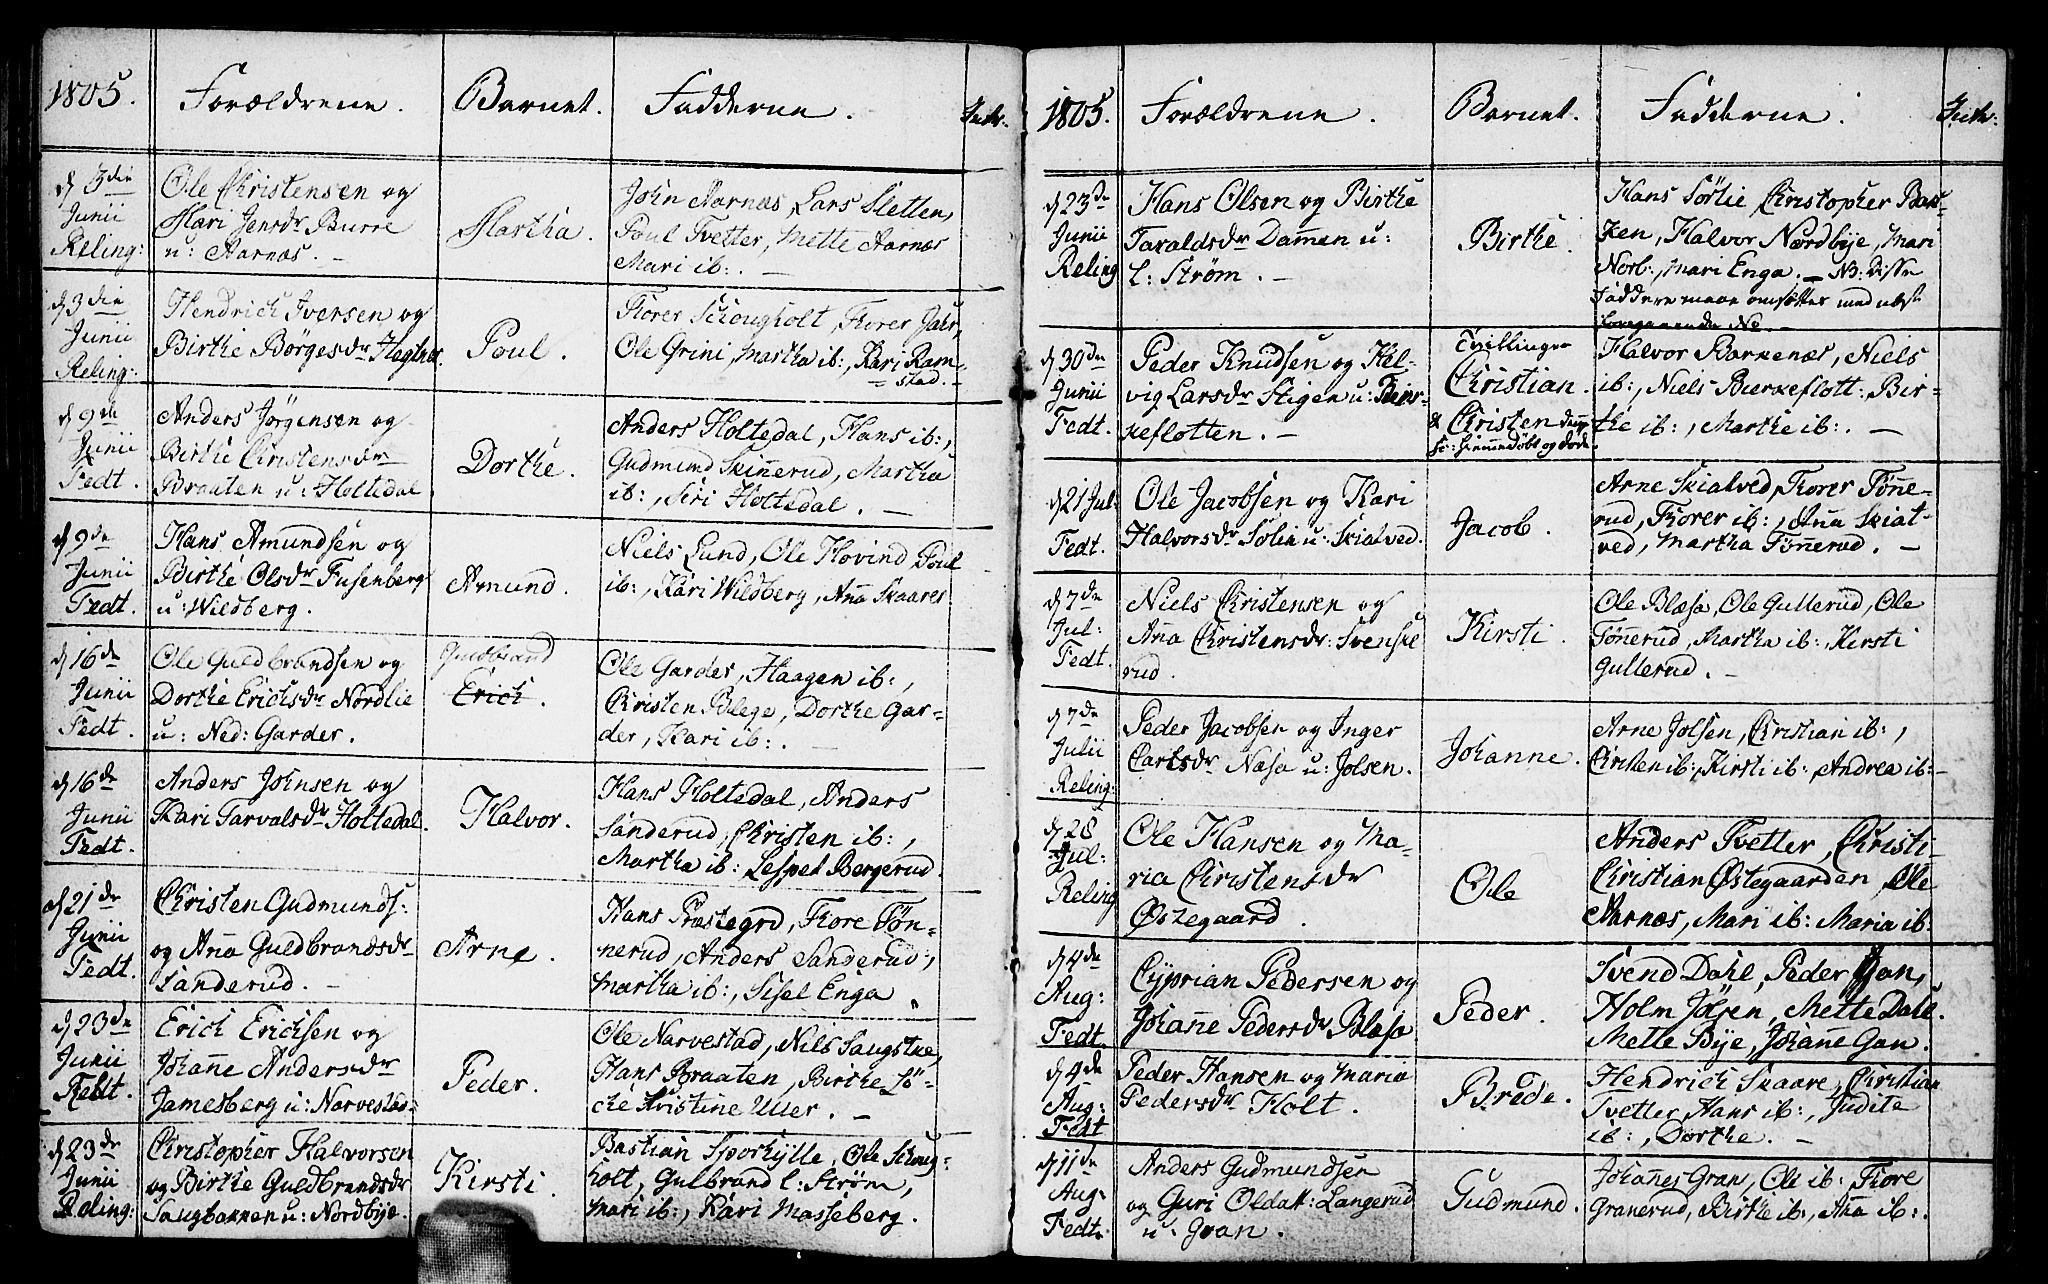 1805.
Forældrene.
Barnet.
Fadderne.
d 3die
Junii
Reling:
Ole Christensen og
Mari Jensdr Burre
u: Aarnæs. -
Martha.
John Aarnæs, Lars Sletten,
Poul Tvetter, Mette Aarnæs
Mari ib:. -
d 3die
Junii
Reling:
Hendrich Iversen og
Birthe Börgesdr Hegtnes.
Poul.
Torer Schougholt, Torer Jahr,
Ole Grini, Martha ib:, Kari Ram-
stad. -
d 9de
Junii
Fedt.
Anders Jörgensen og
Birthe Christensdr
Braaten u: Holtedal
Dorthe.
Anders Holtedal, Hans ib:,
Gudmund Skinnerud, Martha
ib:, Siri Holtedal. -
d 9de
Junii
Fedt.
Hans Amundsen og
Birthe Olsdr Fusenberg
u: Wildberg.
Amund.
Niels Lund, Ole Hovind, Poul
ib:, Kari Wildberg, Aña Skaarer
d 16de
Junii
Fedt.
Ole Guldbrandsen og
Dorthe Erichsdr Nordlie
u: Ned: Garder.
Guldbrand
Erich.
Ole Garder, Haagen ib:,
Christen Blege, Dorthe Gar-
der, Kari ib:. -
d 16de
Junii
Fedt.
Anders Johnsen og
Kari Tarvalsdr Holtedal.
Halvor.
Hans Holtedal, Anders
Sanderud, Christen ib:,
Martha ib: Lespet Bergerud.
d 21de
Junii
Fedt.
Christen Gudmunds:
og Aña Guldbrandsdr
Sanderud. -
Arne.
Hans Præstegrd, Tore Tön-
nerud, Anders Sanderud,
Martha ib:, Sisel Enga
d 23de
Junii
Fedt.
Erich Erichsen og
Johañe Andersdr
Jamesberg u: Narvestad
Peder.
Ole Narvestad, Nils Saugstue,
Hans Braaten, Birthe Lö-
che Kristine Uller. -
d 23de
Junii
Reling:
Christopher Halvorsen
og Birthe Guldbrandsdr
Saugbakken u: Nordbye.
Kirsti.
Bastian Sporhylle, Ole Schoug-
holt, Gulbrand l: Ström,
Mari ib:, Kari Masseberg.
1805.
Forældrene.
Barnet.
Fadderne.
d 23de
Junii
Reling
Hans Olsen og Birthe
Taraldsdr Dammen u:
l: Strøm. -
Birthe.
Hans Sörlie, Christopher Bak-
ken, Halvor Nordbye, Mari
Norb:, Mari Enga. - NB: disse
Faddere maae omsættes med næst
foregaaende No. -
d 30de
Junii
Fedt.
Peder Knudsen og Hel-
vig Larsdr Stigen u: Bier-
keflotten. -
Tvillinger
Christian.
& Christen
hiemmedöbt og döde
Halvor Barkenæs, Niels
ib:, Niels Bierkeflott: Bir-
the ib:, Marthe ib:. -
d 21 Jul:
Fedt.
Ole Jacobsen og Kari
Halvorsdr Solin u: Skiatved.
Jacob.
Arne Skiatved, Torer Töñe-
rud, Torer ib:, Aña Skiat-
ved, Martha Töñerud. -
d 7de
Jul:
Fedt.
Niels Christensen og
Aña Christensdr: Svenske
rud.
Kirsti.
Ole Blæsa, Ole Gullerud, Ole
Töñerud, Martha ib:, Kirsti
Gullerud. -
d 7de
Julii
Reling:
Peder Jacobsen og Inger
Carlsdr Næsa u: Jölsen.
Johanne.
Arne Jölsen, Christian ib:,
Christen ib:, Kirsti ib:, Andrea ib: -
d 28
Jul:
Reling
Ole Hansen og Ma-
ria Christensdr
Østegaard.
Ole
Anders Tvetter, Christi-
Christian Østegaarden, Ole
Aarnæs, Mari ib: Maria ib:
d 4de
Aug:
Fedt.
Cyprian Pedersen og
Johañe Pedersdr Blæsa
Peder.
Svend Dahl, Peder Gan,
Holm Jölsen, Mette Dahl.
Mette Bye, Johañe Gan.
d 4de
Aug:
Fedt
Peder Hansen og Maria
Pedersdr Holt.
Brede.
Hendrich Skaare, Christian
Tvetter, Hans ib:, Judite
ib:, Dorthe. -
d 11de
Aug:
Fedt.
Anders Gudmundsen
og Guri Oldatt: Langerud
u: Gran.
Gudmund.
Johañes Gran, Ole ib: Tore
Granerud, Birthe ib:, Aña ib:.